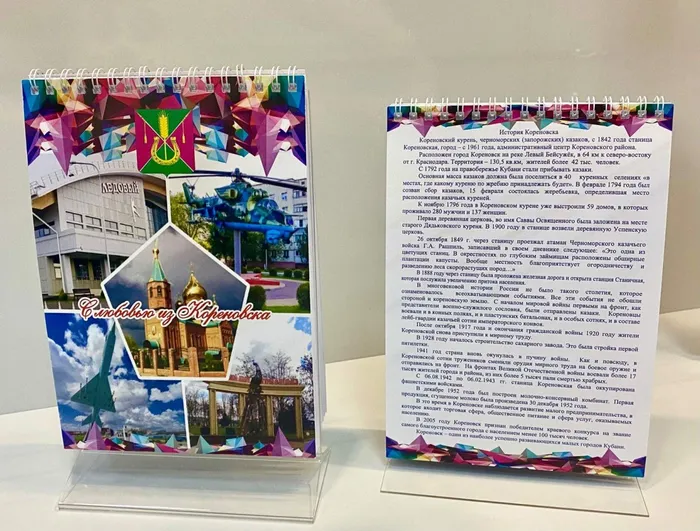 ЛЕДОВЫЙ
С любовью из Кореновска
История Кореновска
Кореновский курень, черноморских (запорожских) казаков, с 1842 года станица
Кореновская, город – с 1961 года, административный центр Кореновского района.
Расположен город Кореновск на реке Левый Бейсужёк, в 64 к северо-востоку
от г. Краснодара. Территория – 130,5 кв.км, жителей более 42 тыс. человек.
С 1792 года на правобережье Кубани стали прибывать казаки.
Основная масса казаков должна была поселиться в 40 куренных селениях «в
местах, где какому куреню по жребию принадлежать будет». В феврале 1794 был
созван сбор казаков, 15 февраля состоялась жеребьевка, определившая место
расположения казачьих куреней.
К ноябрю 1796 года в Кореновском курене уже выстроили 59 домов, в которых
проживало 280 мужчин и 137 женщин.
Первая деревянная церковь, во имя Саввы Освященного была заложена на месте
старого Дядьковского куреня. В 1900 году в станице возвели деревянную Успенскую
церковь.
26 октября 1849 г. через станицу проезжал атаман Черноморского казачьего
войска Г.А. Рашпиль, записавший в своем дневнике следующее: «Это одна из
цветущих станиц. В окрестностях по глубоким займищам расположены обширные
плантации капусты. Вообще местность благоприятствует огородничеству и
разведению леса скорорастущих пород…»
В 1888 году через станицу была проложена железная дорога и открыта станция Станичная,
которая послужила увеличению притока населения.
В многовековой истории России не было такого столетия, которое
ознаменовалось всепоглощающими событиями. Все эти события не обошли
стороной и кореновскую землю. С началом мировой войны первыми на фронт, как
представители военно-служилого сословия, были отправлены казаки. Кореновцы
воевали и в конных полках, и в пластунских батальонах, и в особых сотнях, и в составе
лейб-гвардии казачьей сотни императорского конвоя.
После октября 1917 года и окончания гражданской войны 1920 году жители
Кореновской снова приступили к мирному труду.
В 1928 году началось строительство сахарного завода. Это была стройка первой
пятилетки.
1941 год страна вновь окунулась в пучину войны. Как и повсюду, в
Кореновской сотни тружеников сменили орудия мирного труда на боевое оружие и
отправились на фронт. На фронтах Великой Отечественной войны воевали более 17
тысяч жителей города и района, из них более 5 тысяч пали смертью храбрых.
С 06.08.1942 по 06.02.1943 гг. станица Кореновская была оккупирована
фашистскими войсками.
В декабре 1952 года был построен молочно-консервный комбинат. Первая
продукция, сгущенное молоко была произведена 30 декабря 1952 года.
В это время в Кореновске наблюдается развитие малого предпринимательства, в
которое входит торговая сфера, общественное питание и сфера услуг, оказываемых
населению.
В 2005 году Кореновск признан победителем краевого конкурса на звание
самого благоустроенного города с населением менее 100 тысяч человек.
Кореновск – один из наиболее успешно развивающихся малых городов Кубани.